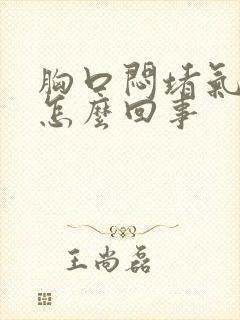 胸口悶堵氣
怎麼回事
王尚磊